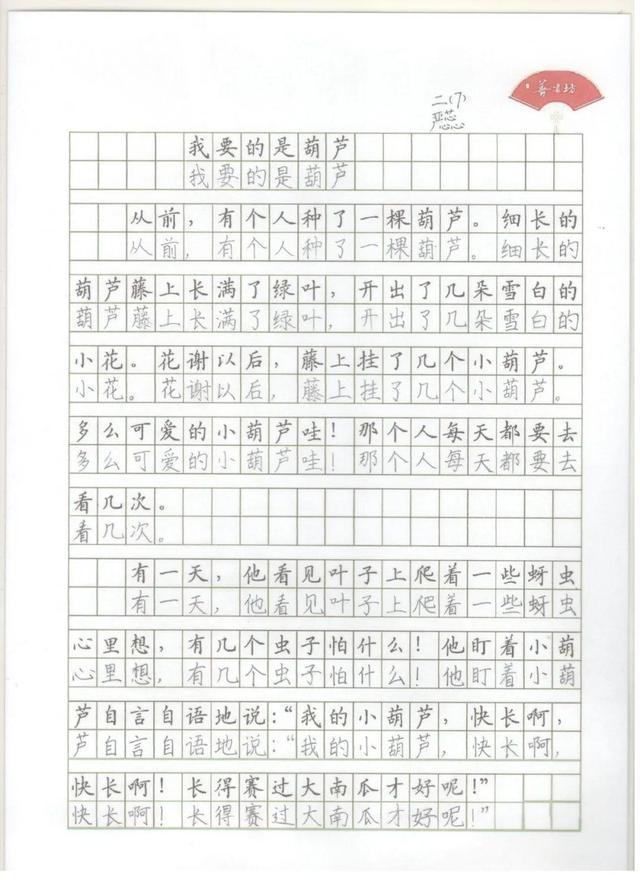 善书坊
二(7)
严蕊心
我要的是葫芦
我要的是葫芦
从前，有个人种了一棵葫芦。细长的
从前，有个人种了一棵葫芦。细长的
葫芦藤上长满了绿叶，开出了几朵雪白的
葫芦藤上长满了绿叶，开出了几朵雪白的
小花。花谢以后，藤上挂了几个小葫芦。
小花。花谢以后，藤上挂了几个小葫芦。
多么可爱的小葫芦哇！那个人每天都要去
多么可爱的小葫芦哇！那个人每天都要去
看几次。
看几次。
有一天，他看见叶子上爬着一些蚜虫
有一天，他看见叶子上爬着一些蚜虫
心里想，有几个虫子怕什么！他盯着小葫
心里想，有几个虫子怕什么！他盯着小葫
芦自言自语地说：“我的小葫芦，快长啊，
芦自言自语地说：“我的小葫芦，快长啊，
快长啊！长得赛过大南瓜才好呢！”
快长啊！长得赛过大南瓜才好呢！”